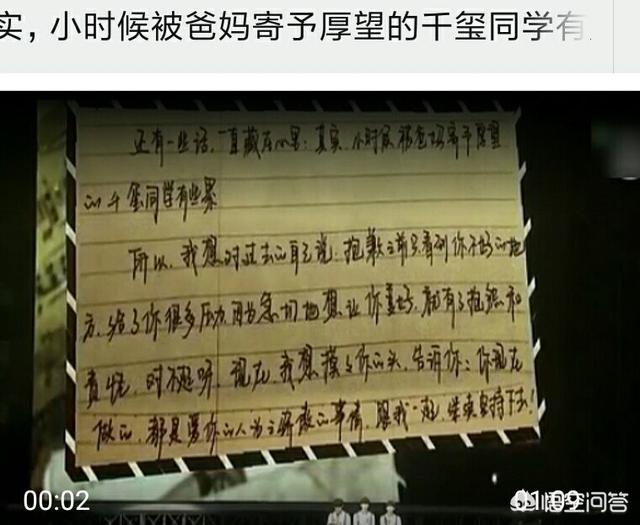 实，小时候被爸妈寄予厚望的千玺同学有
还有一些话，一直藏在心里：其实，小时候被爸妈寄予厚望
的千玺同学有些累
所以，我想对过去的自己说，抱歉之前只看到你不好的地
方，给了你很多压力，因为急切地想让你变好，就有了抱怨和
责怪，对不起呀，现在，我想摸摸你的头，告诉你：你现在
做的，都是爱你的人为之骄傲的事情，跟我一起，继续坚持下去！
00:02
01:09
悟空问答